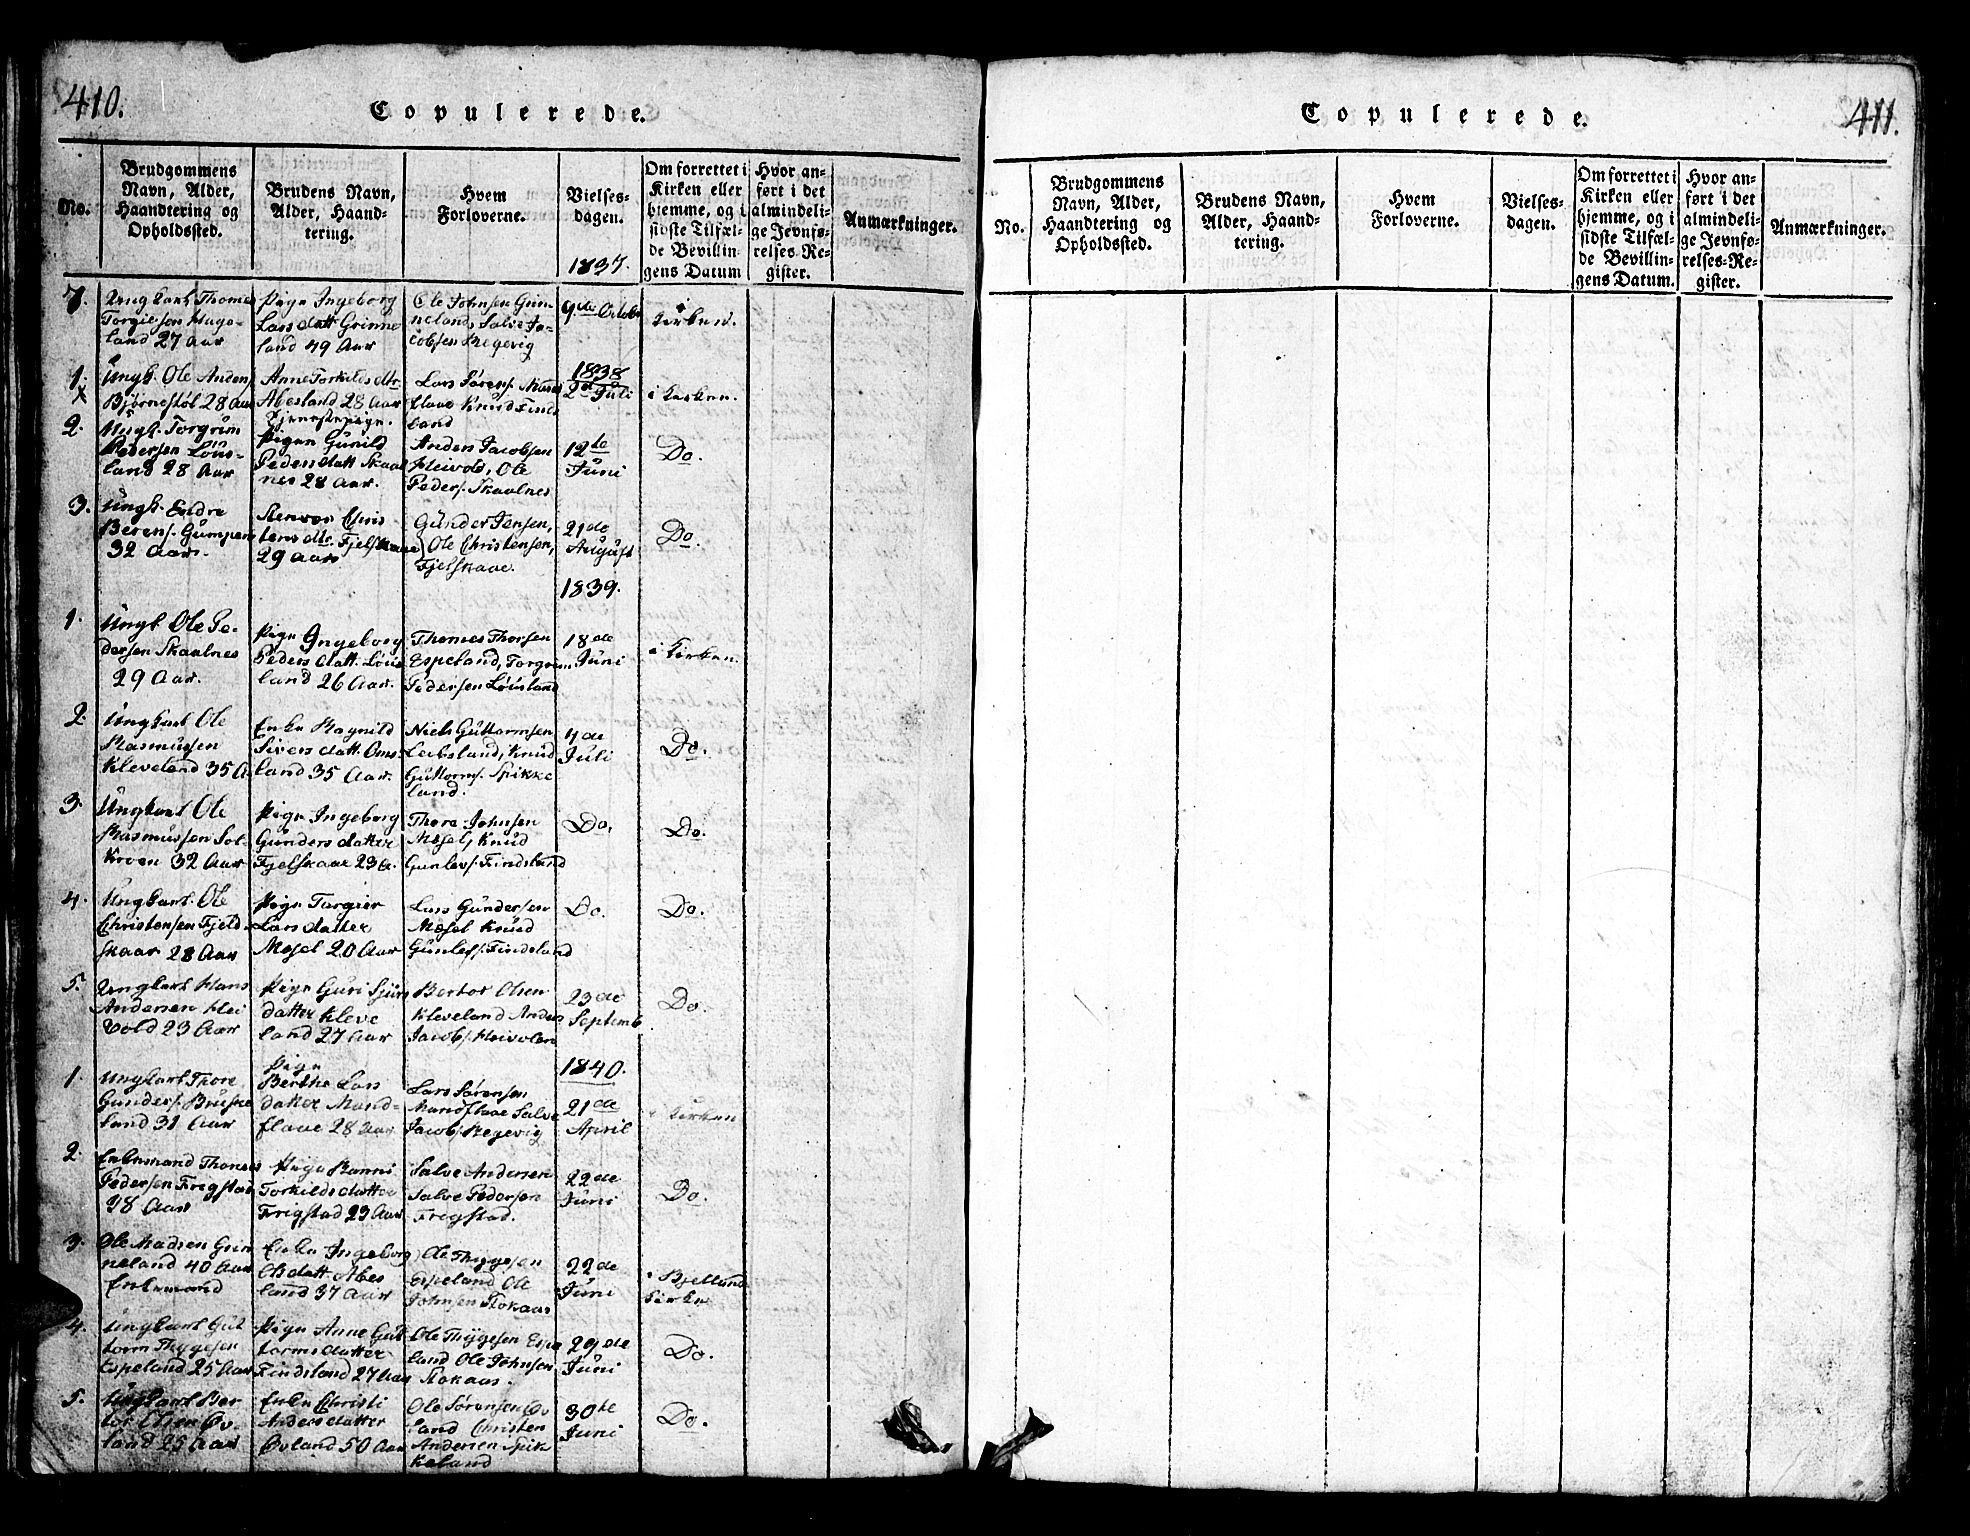 410.
Copulerede.
No.
Brudgommens
Navn, Alder,
Haandtering og
Opholdssted.
Brudens Navn,
Alder, Haand-
tering.
Hvem
Forloverne.
Vielses-
dagen.
1837.
Om forrettet i
Kirken eller
hjemme, og i
sidste Tilfæl-
de Bevillin-
gens Datum
Hvor an-
ført i det
almindeli-
ge Jevnfø-
relses-Re-
gister.
Anmærkninger.
7.
Ungkarl Thome
Torgilsen
land 27 Aar
Pigen Ingeborg
Lars datt Grinne
land 49 Aar
Ole Johnsen Grin-
neland, Salve Ja-
cobsen Regevig
9de Octobr
i
Kirken.
1.
Ungk. Ole Anders
Bjørnestøl 28 Aar
Anne Torkilds dtr
Abesland 28 Aar
Tjenestepige.
Lars Sørens.
flaae Knud Finds
land
1838
2de Juli
i Kirken.
2.
Ungk. Torgrim
Pedersen Løus-
land 28 Aar
Pigen Gunild
Peders datt Skaal
nes 28 Aar.
Anders Jacobsen
Heivold, Ole
Peders. Skaalnes
12te
Juni
Do.
3.
Ungk. Endre
Berens. Gumpen
32 Aar.
Chris
tens dtr. Fjelskaae
29 Aar
Gunder Jensen,
Ole Christensen,
Fjelskaae.
21de
August
Do.
1839.
1.
Ungk Ole Pe-
dersen Skaalnes
29 Aar.
Pign Ingeborg
Peders datt. Løus
land 26 Aar.
Thomes Thorsen
Espeland, Torgrim
Pedersen Løusland
18de
Juni
i Kirken.
2.
Ungkarl Ole
Rasmussen
Kleveland 35 A.
Enke Ragnild
Sivers datt. Oms-
land 35 Aar.
Niels Guttormsen
Leibsland, Knud
Guttorms. Spikke
land.
4de
Juli
Do.
3.
Ungkarl Ole
Rasmussen Sol-
Kroen 32 Aar
Pign Ingeborg
Gunders datter
Fjelskaar 23 A.
Thore Johnsen
Mosel, Knud
Gunlevs. Findsland
Do.
Do.
4.
Ungkarl. Ole
Christensen Fjeld-
skaar 28 Aar
Pign Torgier
Lars datter
Mosel 20 Aar
Lars Gundersen
Mosel Knud
Gunlevs. Findsland
Do.
Do.
5.
Ungkarl Hans
Andersen Hei
vold 23 Aar
Pign Guri Sjurs
datter Kleve
land 27 Aar
Bertor Olsen
Kleveland Anders
Jacobs. Heivolen
23de
Septemb
Do.
1840.
1.
Ungkarl Thore
Gunders. Bruske
land 31 Aar
Pign
Berthe Lars
datter Mand-
flaae 28 Aar
Lars Sørensen
Mandflaae Salve
Jacobs. Regevig
21de
April
i Kirken
2.
Enkemand Thomes
Pedersen Frigstad
48 Aar
Pign Ranni
Torkilds datter
Frigstad 23 Aar
Salve Andersen
Salve Pedersen
Frigstad.
22de
Juni
Do.
3.
Ole Madsen Grin
neland 40 Aar
Enkemand
Enke Ingeborg
Ols datt. Abes
land 37 Aar
Ole Thygesen
Espeland Ole
Johnsen Stokaas
22de
Juni
i Bjelland
Kirke
4.
Ungkarl Gut
torm Thygesen
Espeland 25 Aar
Pign Anne Gut
torms datter
Findsland 27 Aar
Ole Thygesen Espe
land Ole Johnsen
Stokaas.
29de
Juni
Do.
5.
Ungkarl Ber
tor Olsen Øv
land 25 Aar
Enke Christi
Anders datter
Øvland 50 Aar
Ole Sørensen Øv
land Christen
Andersen Spik
keland
30te
Juni
Do.
Copulerede.
411.
No.
Brudgommens
Navn, Alder,
Haandtering og
Opholdssted.
Brudens Navn,
Alder, Haand-
tering.
Hvem
Forloverne.
Vielses-
dagen.
Om forrettet i
Kirken eller
hjemme, og i
sidste Tilfæl-
de Bevillin-
gens Datum.
Hvor an-
ført i det
almindeli-
ge Jevnfø-
relses-Re-
gister.
Anmærkninger.